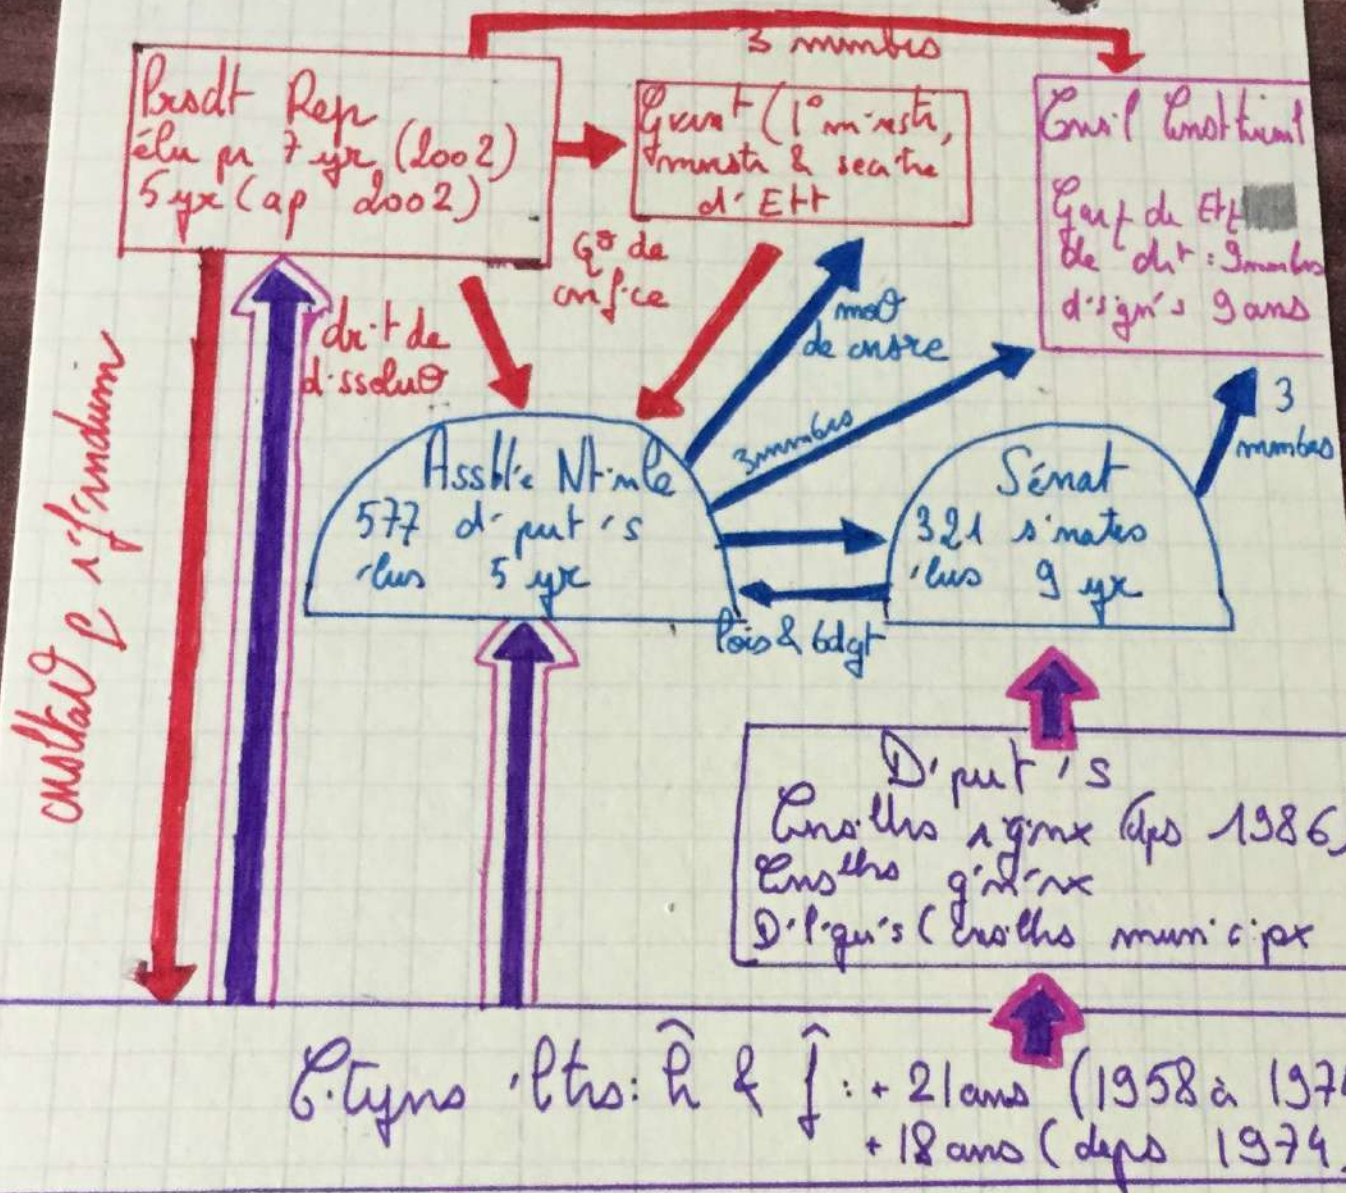 3 mmbrs
Prsdt Rep
élu pr 7 yr (2002)
5 yx (ap 2002)
Gvrnt (1° ministr,
mnstr & secrtre
d'Ett
Cnsil Cnsttut
Gart de Ett
de drt : 9 mmbrs
d'sign's 9 ans
Q° de
cnf.ce
dr.t de
d.ssoluθ
moθ
de cnsre
3 mmbrs
3
mmbrs
cnsltatθ p r'f'rndum
Assbl'e Nt.nle
577 d'put's
'lus 5 yx
Sénat
321 s'natrs
'lus 9 yx
lois & bdgt
D'put's
Cnsllrs r'gnx (dps 1986)
Cnsllrs g'n'rx
D'l'gu's (Cnsllrs municipx
C.tyns 'ltrs: ĥ & f̂ : + 21 ans (1958 à 197
+ 18 ans (deps 1974